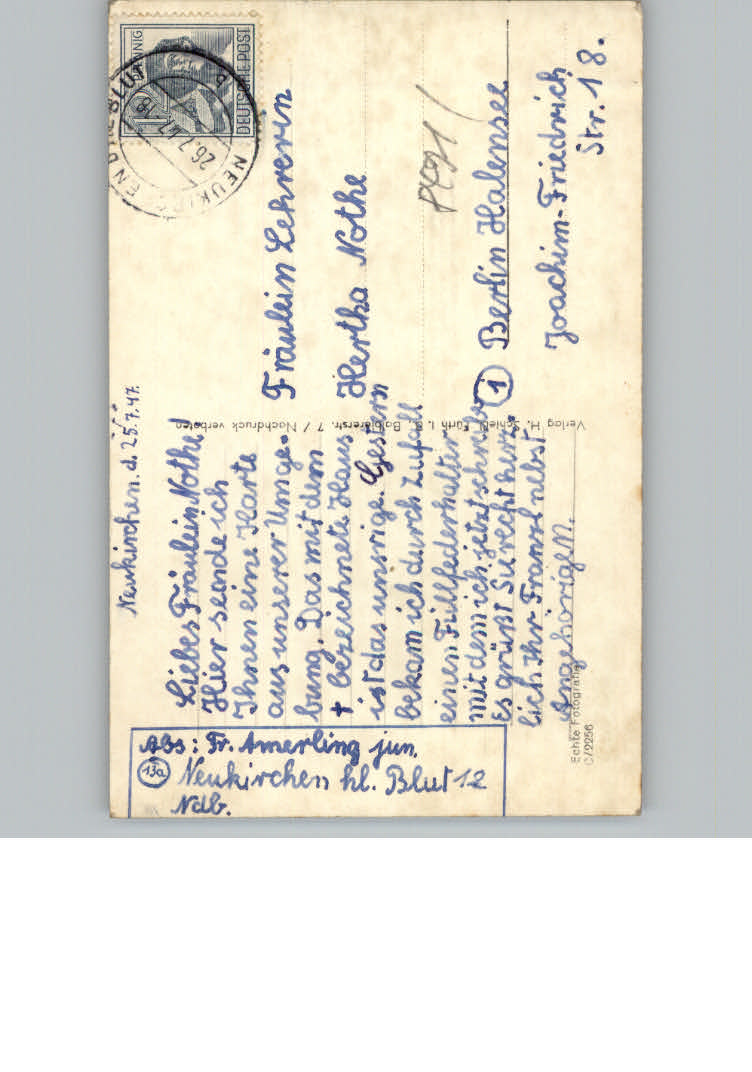 Neukirchen. d. 25.7.47.
Liebes Fräulein Nothe!
Hier sende ich
Ihnen eine Karte
aus unserer Umge-
bung. Das mit dem
+ bezeichnete Haus
ist das unsrige. Gestern
bekam ich durch Zufall
einen Füllfederhalter
mit dem ich jetzt schreibe
Es grüßt Sie recht herz-
lich Ihr Franzl nebst
Angehörigen.
Abs: Fr. Amerling jun.
13a Neukirchen hl. Blut 12
Ndb.
Fräulein Lehrerin
Hertha Nothe
1 Berlin Halensee
Joachim-Friedrich
Str. 18.
PFENNIG
12
DEUTSCHE POST
NEUKIRCHEN B HL BLUT
26.7.47.18
b
Verlag H. Schleif, Fürth i. B., Badstr. 7 / Nachdruck verboten
Echte Fotografie
C/2256